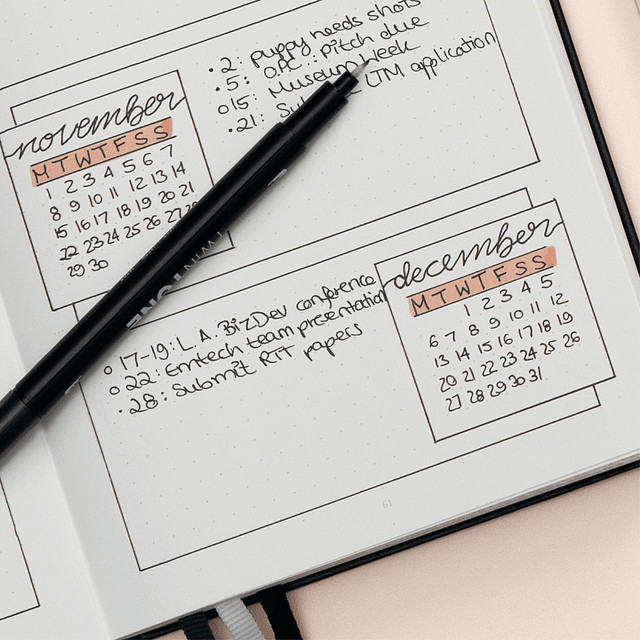 • 2: puppy needs shots
• 5: pitch due
o 15: Museum Week
• 21: LTM application
november
M T W T F S S
1 2 3 4 5 6 7
8 9 10 11 12 13 14
15 16 17 18 19 20 21
22 23 24 25 26 27 28
29 30
o 17-19: L.A. BizDev conference
o 22: Emtech team presentation
• 28: Submit RTT papers
december
M T W T F S S
1 2 3 4 5
6 7 8 9 10 11 12
13 14 15 16 17 18 19
20 21 22 23 24 25 26
27 28 29 30 31
61